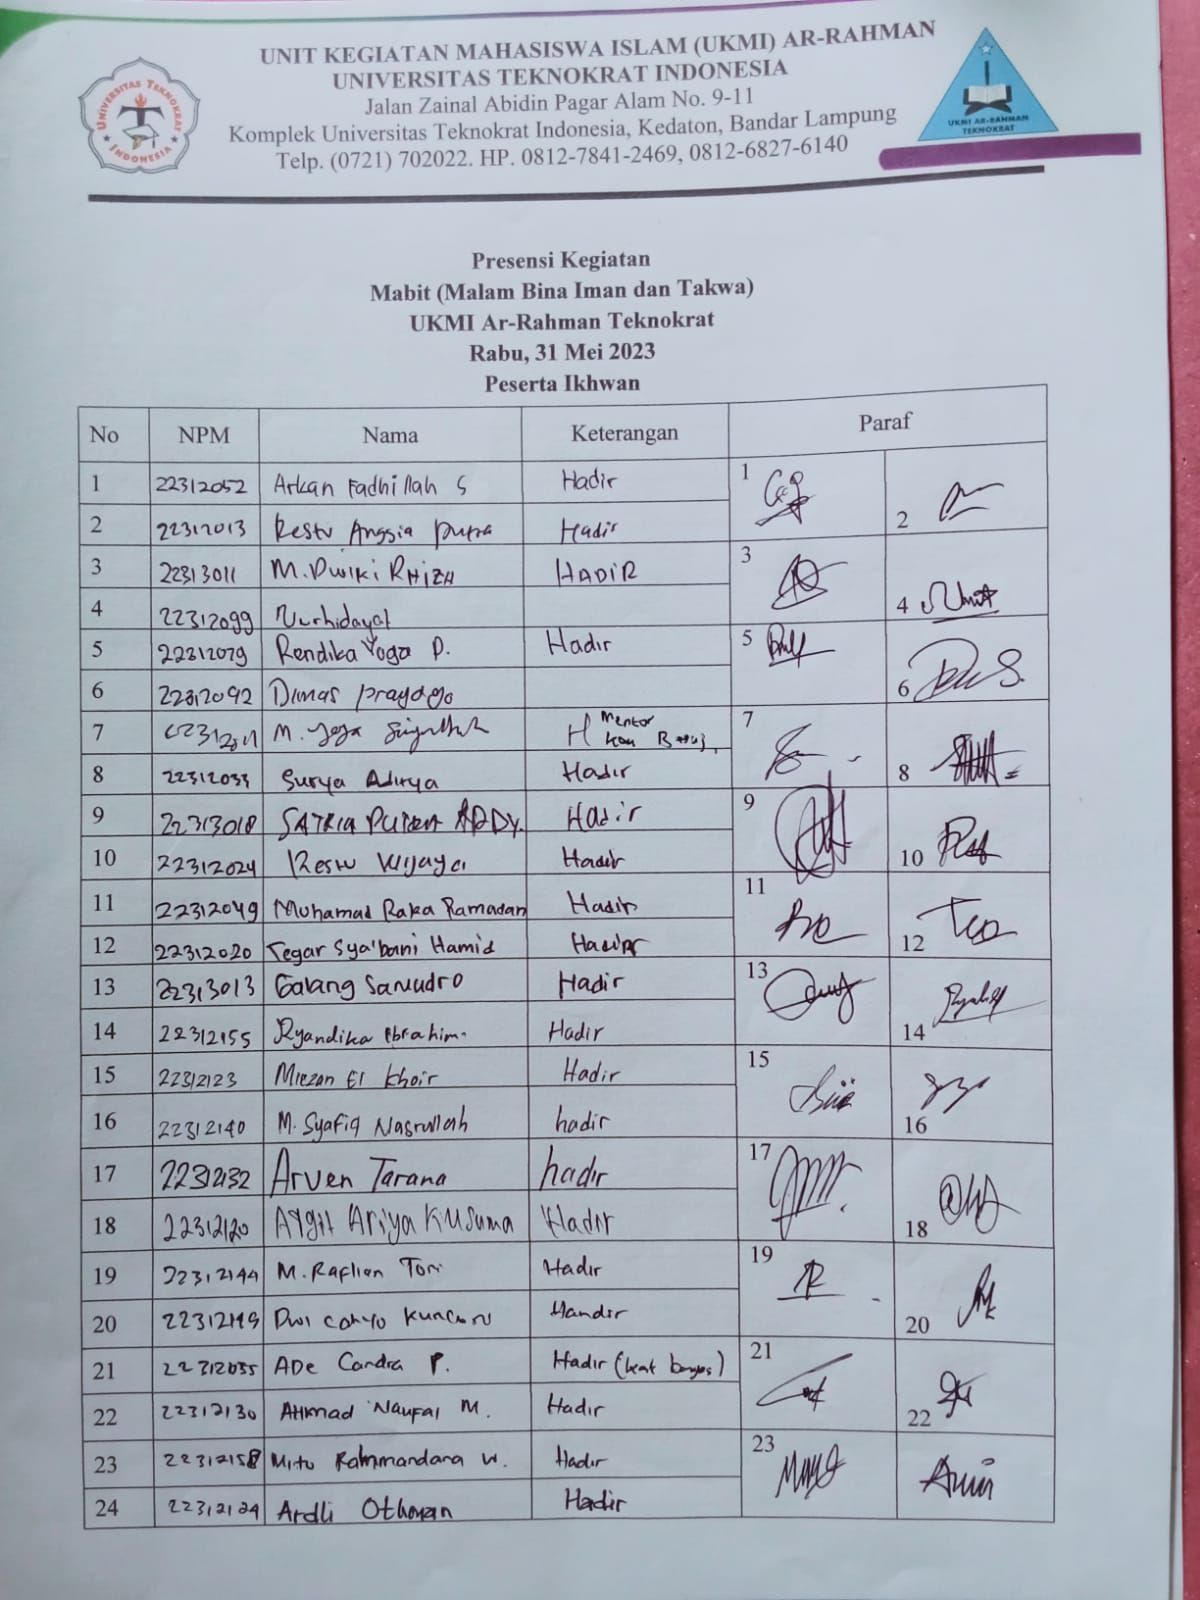 UNIT KEGIATAN MAHASISWA ISLAM (UKMI) AR-RAHMAN
UNIVERSITAS TEKNOKRAT INDONESIA
Jalan Zainal Abidin Pagar Alam No. 9-11
Komplek Universitas Teknokrat Indonesia, Kedaton, Bandar Lampung
Telp. (0721) 702022. HP. 0812-7841-2469, 0812-6827-6140
UNIVERSITAS TEKNOKRAT INDONESIA
UKMI AR-RAHMAN
TEKNOKRAT
Presensi Kegiatan
Mabit (Malam Bina Iman dan Takwa)
UKMI Ar-Rahman Teknokrat
Rabu, 31 Mei 2023
Peserta Ikhwan
No NPM Nama Keterangan Paraf
1 22312052 Arkan Fadhillah S Hadir 1
2 22312013 Restu Anggia putra Hadir 2
3 22313011 M. Dwiki RHIZH HADIR 3
4 22312099 Nurhidayat 4
5 22312079 Rendika Yoga P. Hadir 5
6 22312092 Dimas prayogo 6
7 M. Yoga H Mentor 7
8 22312033 Surya Aditya Hadir 8
9 22313018 SATRIA PUTRA ARDDY. Hadir 9
10 22312024 Restu Wijaya Hadir 10
11 22312049 Muhamad Raka Ramadan Hadir 11
12 22312020 Tegar Sya'bani Hamid Hadir 12
13 22313013 Galang Samudro Hadir 13
14 22312155 Ryandika Ebrahim. Hadir 14
15 22312123 Miezan El Khoir Hadir 15
16 22312140 M. Syafiq Nasrullah hadir 16
17 22312132 Arven Tarana hadir 17
18 22312120 Aygit Ariya Kusuma Hadir 18
19 22312144 M. Raflian Toni Hadir 19
20 22312119 Dwi cahyo Kuncoro Handir 20
21 22312035 ADe Candra P. Hadir 21
22 22312130 AHMAD Naufal M. Hadir 22
23 22312158 W. Hadir 23
24 22312124 Ardli Othman Hadir